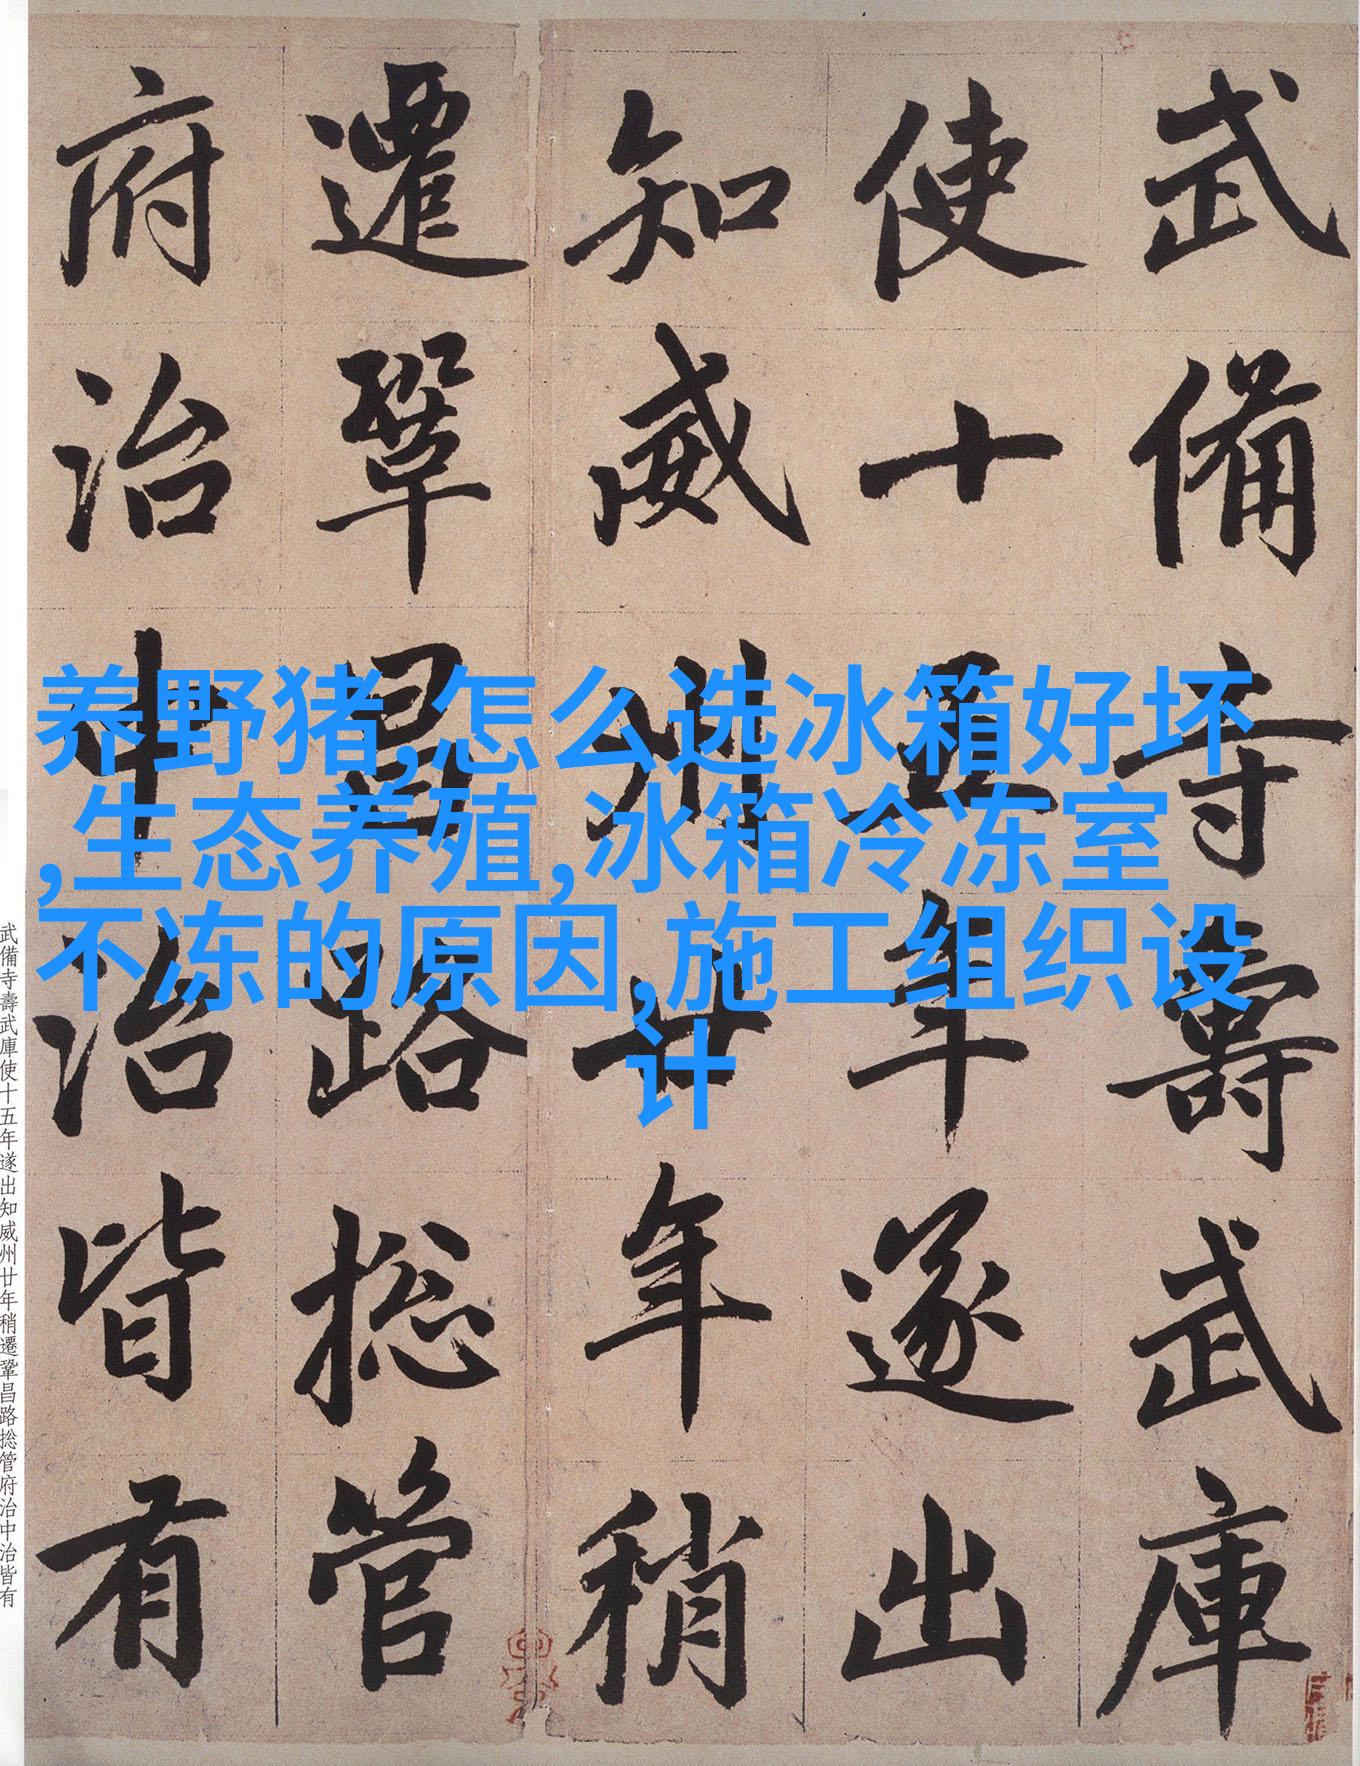 武備寺壽武庫
使十五年遂出
知威州廿年稍
遷鞏昌路捴管
府治中治皆有
养野猪,怎么选冰箱好坏
,生态养殖,冰箱冷冻室
不冻的原因,施工组织设
计
武備寺壽武庫使十五年遂出知威州廿年稍遷鞏昌路捴管府治中治皆有